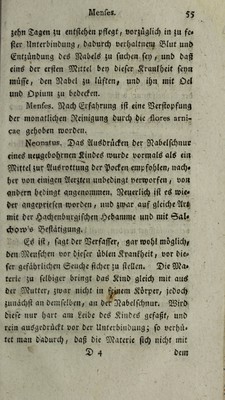 Menses. 55
zehn Tagen zu entstehen pflegt, vorzüglich in zu fe-
ster Unterbindung, dadurch verhaltnem Blut und
Entzündung des Nabels zu suchen sey, und daß
eins der ersten Mittel bey dieser Krankheit seyn
müsse, den Nabel zu lüften, und ihn mit Oel
und Opium zu bedecken.
Menses. Nach Erfahrung ist eine Verstopfung
der monatlichen Reinigung durch die flores arni-
cae gehoben worden.
Neonatus. Das Ausdrücken der Nabelschnur
eines neugebohrnen Kindes wurde vormals als ein
Mittel zur Ausrottung der Pocken empfohlen, nach-
her von einigen Aerzten unbedingt verworfen, von
andern bedingt angenommen. Neuerlich ist es wie-
der angepriesen worden, und zwar auf gleiche Art
mit der Hachenburgischen Hebamme und mit Sal-
chow's Bestätigung.
Es ist, sagt der Verfasser, gar wohl möglich,
den Menschen vor dieser üblen Krankheit, vor die-
ser gefährlichen Seuche sicher zu stellen. Die Ma-
terie zu selbiger bringt das Kind gleich mit aus
der Mutter, zwar nicht in seinem Körper, jedoch
zunächst an demselben, an der Nabelschnur. Wird
diese nur hart am Leibe des Kindes gefaßt, und
rein ausgedrückt vor der Unterbindung; so verhü-
tet man dadurch, daß die Materie sich nicht mit
D 4 dem